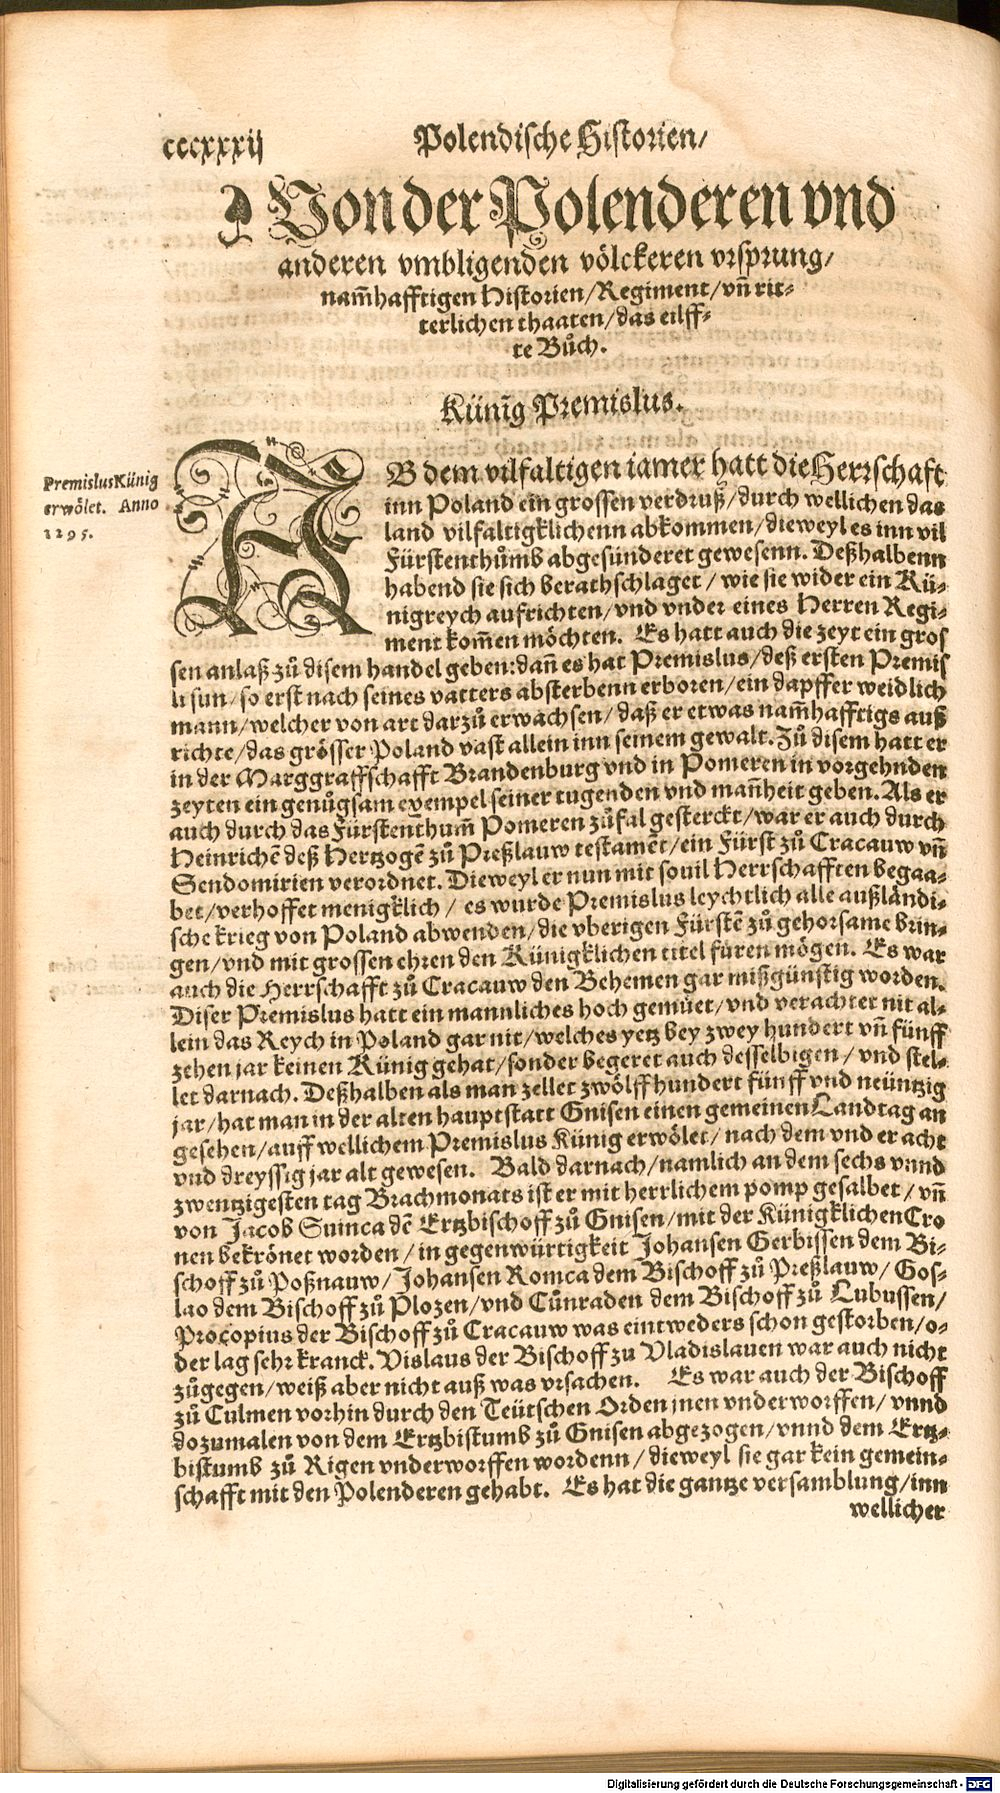 cccxxxij
Polendische Historien/
Von der Polenderen vnd
anderen vmbligenden völckeren vrsprung/
nam̃hafftigen Historien/Regiment/vñ rit-
terlichen thaaten/das eilff-
te Bůch.
Künig Premislus.
Premislus Künig
erwölet. Anno
1295.
AB dem vilfaltigen iamer hatt die Herrschaft
inn Poland ein grossen verdruß/durch wellichen das
land vilfaltigklichenn abkommen/dieweyl es inn vil
Fürstenthůmb abgesünderet gewesenn. Deßhalbenn
habend sie sich berathschlaget/wie sie wider ein Kü-
nigreych aufrichten/vnd vnder eines Herren Regi-
ment kom̃en möchten. Es hatt auch die zeyt ein gros
sen anlaß zů disem handel geben:dañ es hat Premislus/deß ersten Premis
li sun/so erst nach seines vatters absterbenn erboren/ein dapffer weidlich
mann/welcher von art darzů erwachsen/daß er etwas nam̃hafftigs auß
richte/das grösser Poland vast allein inn seinem gewalt. Zů disem hatt er
in der Marggraffschafft Brandenburg vnd in Pomeren in vorgehnden
zeyten ein genůgsam exempel seiner tugenden vnd mañheit geben. Als er
auch durch das Fürstenthum̃ Pomeren zůfal gesterckt/war er auch durch
Heinrichẽ deß Hertzogẽ zů Preßlauw testamẽt/ein Fürst zů Cracauw vñ
Sendomirien verordnet. Dieweyl er nun mit souil Herrschafften begaa-
bet/verhoffet menigklich/es wurde Premislus leychtlich alle außländi-
sche krieg von Poland abwenden/die vbrigen Fürstẽ zů gehorsame brin-
gen/vnd mit grossen ehren den Künigklichen titel füren mögen. Es war
auch die Herrschafft zů Cracauw den Behemen gar mißgünstig worden.
Diser Premislus hatt ein mannliches hoch gemüet/vnd verachtet nit al-
lein das Reych in Poland gar nit/welches yetz bey zwey hundert vñ fünff
zehen jar keinen Künig gehat/sonder begeret auch desselbigen/vnd stel-
let darnach. Deßhalben als man zellet zwölff hundert fünff vnd neüntzig
jar/hat man in der alten hauptstatt Gnisen einen gemeinen Landtag an
gesehen/auff wellichem Premislus Künig erwölet/nach dem vnd er acht
vnd dreyssig jar alt gewesen. Bald darnach/namlich an dem sechs vnnd
zwentzigesten tag Brachmonats ist er mit herrlichem pomp gesalbet/vñ
von Jacob Suinca dẽ Ertzbischoff zů Gnisen/mit der Künigklichen Cro
nen bekrönet worden/in gegenwürtigkeit Johansen Gerbissen dem Bi-
schoff zů Poßnauw/Johansen Romca dem Bischoff zů Preßlauw/Gos-
lao dem Bischoff zů Plozen/vnd Cůnraden dem Bischoff zů Lubussen/
Procopius der Bischoff zů Cracauw was eintweders schon gestorben/o-
der lag sehr kranck. Vislaus der Bischoff zu Vladislauen war auch nicht
zůgegen/weiß aber nicht auß was vrsachen. Es war auch der Bischoff
zů Culmen vorhin durch den Teütschen Orden jnen vnderworffen/vnnd
dozumalen von dem Ertzbistumb zů Gnisen abgezogen/vnnd dem Ertz-
bistumb zů Rigen vnderworffen wordenn/dieweyl sie gar kein gemein-
schafft mit den Polenderen gehabt. Es hat die gantze versamblung/inn
wellicher
Digitalisierung gefördert durch die Deutsche Forschungsgemeinschaft - DFG